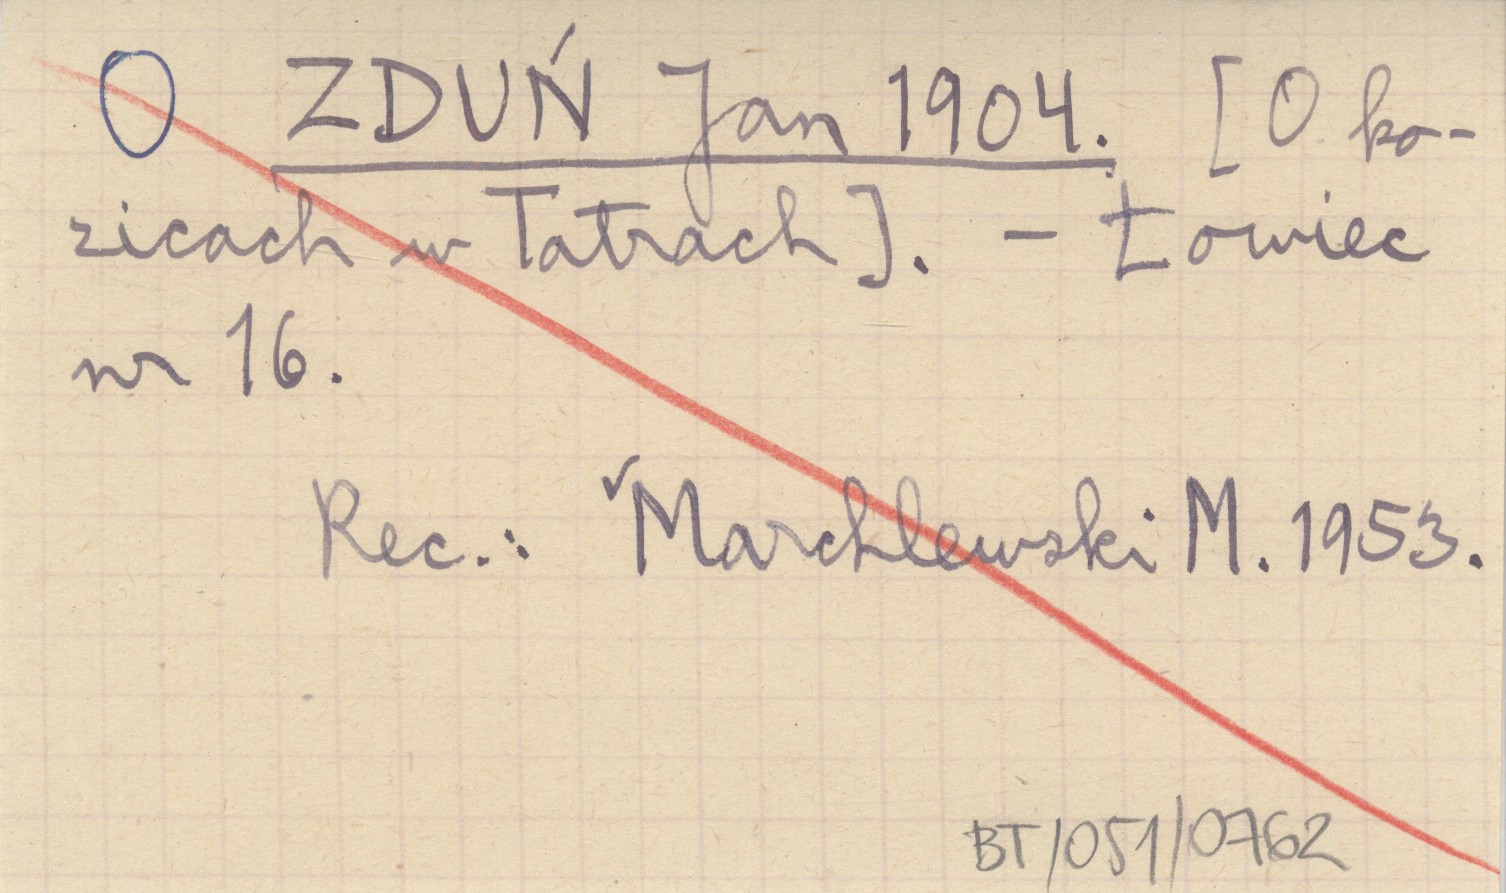 O ZDUŃ Jan 1904. [O ko-
zicach w Tatrach]. - Łowiec
nr 16.
Rec.: ✓Marchlewski M. 1953.
BT/051/0762